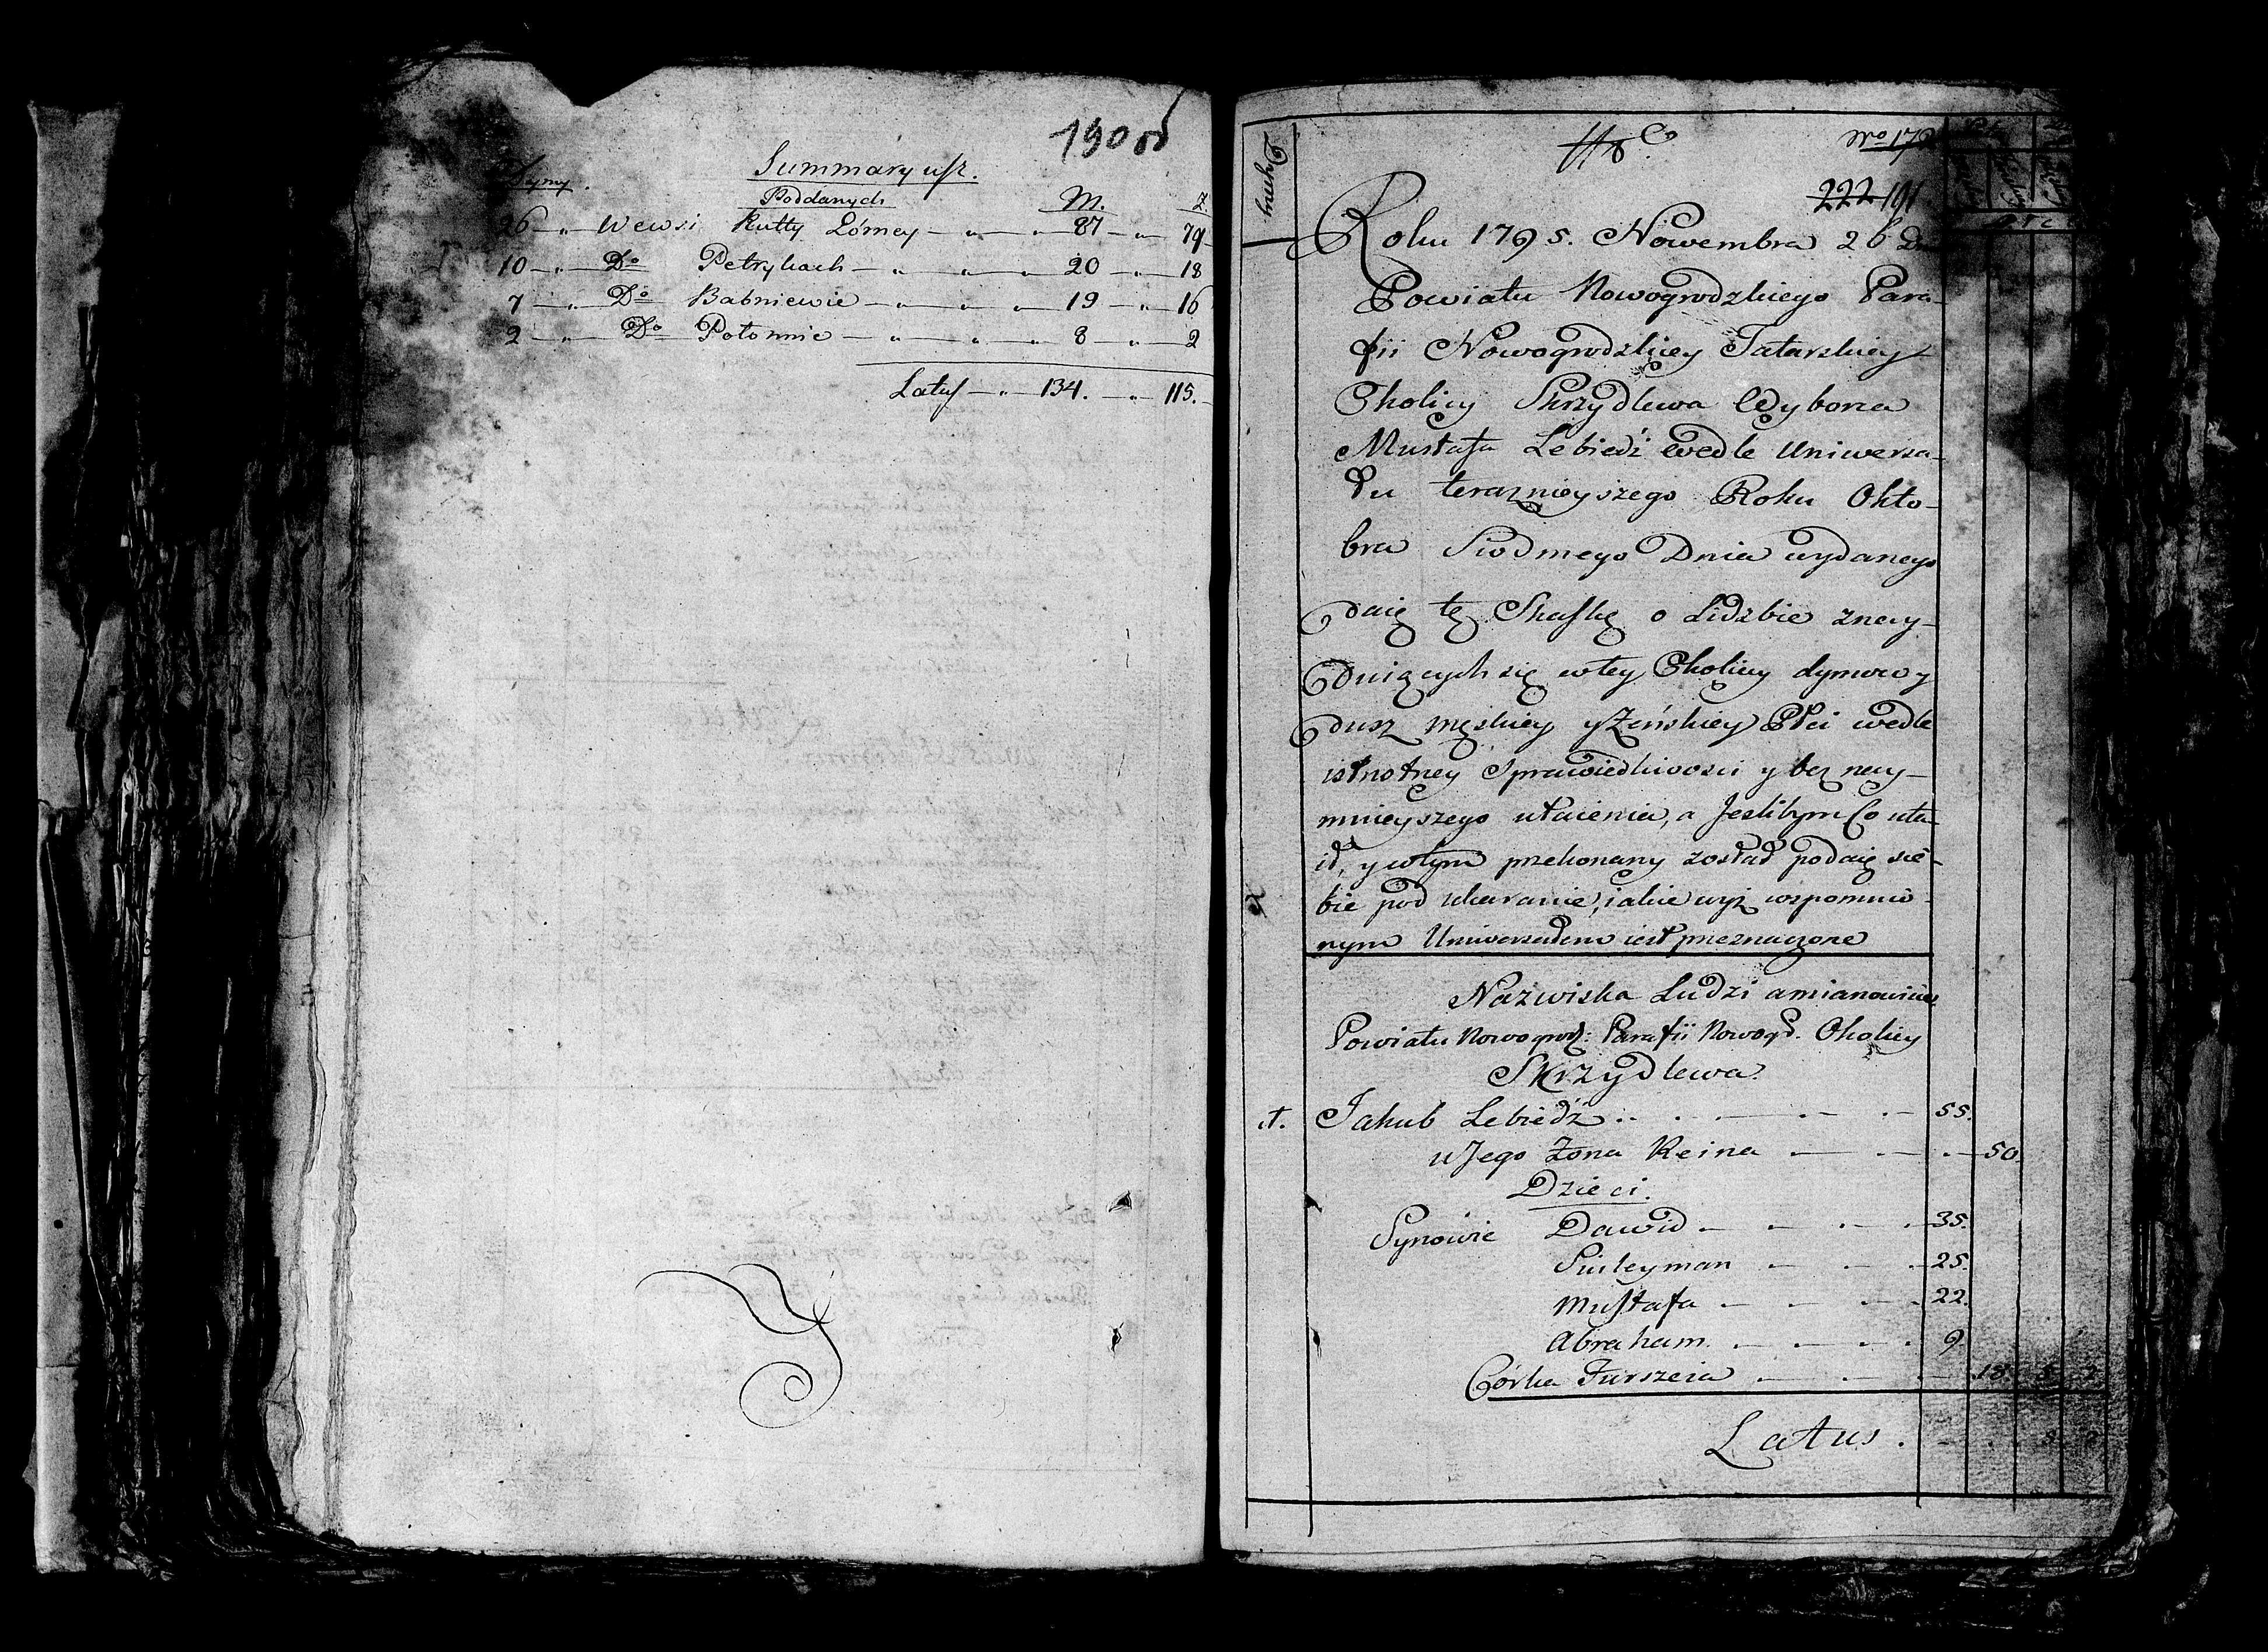 190 об
Summaryusz.
Dymy. Poddanych M. Ż.
26 — " — Wewsi Rutty Górney — " — " 87 — " — 79
10 — " — Do Petrykach — " — " — " 20 — " — 18
7 — " — Do Babniewie — " — " — " 19 — " — 16
2 — " — Do Połonnie — " — " — " 8 — " — 2
Latus — " — 134. — " — 115.
Dymy
No 17
222 191
Roku 1795. Nowembra 26 D
Powiatu Nowogrodzkiego Para-
fii Nowogrodzkiey Tatarskiey
Okolicy Skrzydlewa Wyborca
Mustafa Lebiedź wedle Uniwersa-
łu teraznieyszego Roku Okto-
bra Siodmego Dnia wydanego
daię tę Skaskę o Lidzbie znay-
duiących się wtey Okolicy dymow y
dusz męskiey y Żeńskiey Płci wedle
istnotney Sprawiedliwosci y bez nay-
mnieyszego utaienia, a Jeslibym Co uta-
ił, y wtym przekonany został podaię sie-
bie pod ukaranie, iakie wyż wspomnio-
nym Uniwersałem iest przeznaczone
Nazwiska Ludzi amianowicie
Powiatu Nowogrodz: Parafii Nowogd. Okolicy
Skrzydlewa.
1. Jakub Lebiedź . . — . — . — 55.
u Jego Żona Reina . — . — . — 50.
Dzieci.
Synowie Dawid — . — . — 35.
Suleyman — . — . 25.
Mustafa . — . — . 22.
Abraham. . — . — . 9.
Córka Furszeia . — . — 18. 5. 2
Latus . — . 5. 2